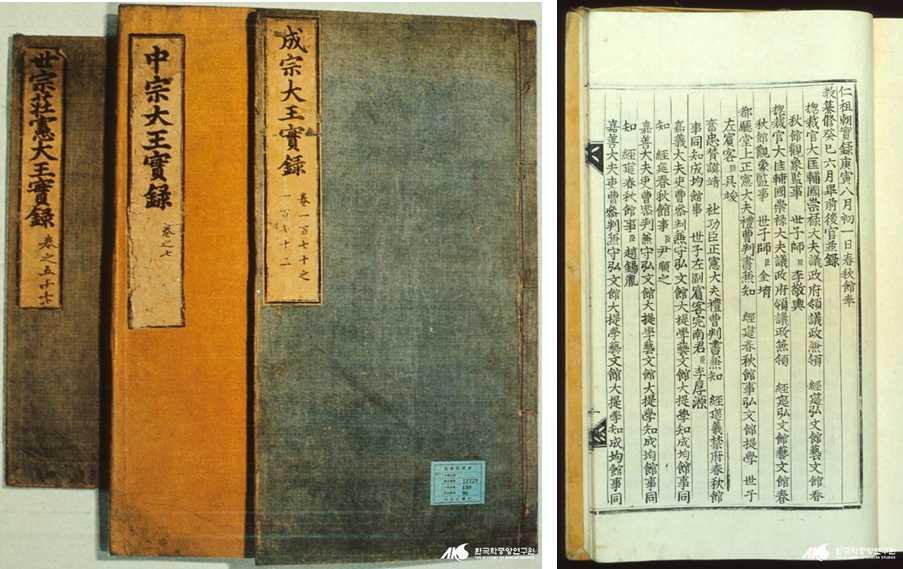 世宗莊憲大王實錄 卷之五十七
中宗大王實錄 卷之七
成宗大王實錄 卷一百七十之
一百七十二
한국학중앙연구원
仁祖朝實錄庚寅八月初一日春秋館奉
敎纂修癸巳六月畢前後官並錄
摠裁官大匡輔國崇祿大夫議政府領議政兼領 經筵弘文館藝文館春
秋館觀象監事 世子師臣李敬輿
摠裁官大匡輔國崇祿大夫議政府領議政兼領 經筵弘文館藝文館春
秋館觀象監事 世子師臣金堉
都廳堂上正憲大夫禮曹判書兼知 經筵春秋館事弘文館提學 世子
左賓客臣吳竣
奮忠贊謨靖 社功臣正憲大夫禮曹判書兼知 經筵義禁府春秋館
事同知成均館事 世子左副賓客完南君臣李厚源
嘉義大夫吏曹參判兼守弘文館大提學藝文館大提學知成均館事同
知 經筵春秋館事臣尹順之
嘉善大夫吏曹參判兼守弘文館大提學藝文館大提學知成均館事同
知 經筵春秋館事臣趙錫胤
嘉善大夫吏曹參判兼守弘文館大提學藝文館大提學知成均館事同
한국학중앙연구원